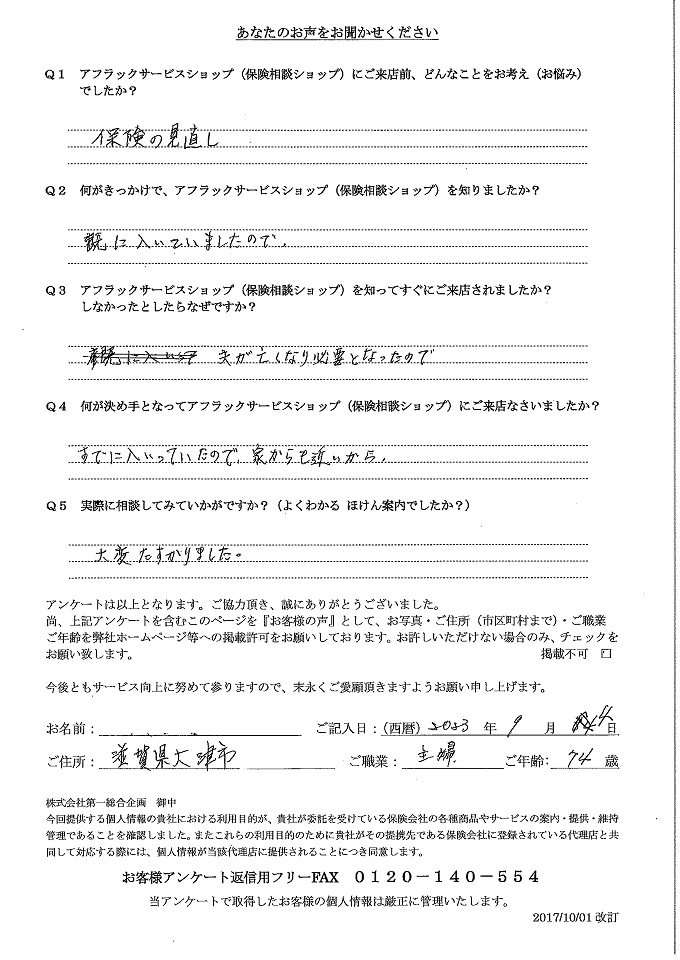 あなたのお声をお聞かせください
Q1 アフラックサービスショップ（保険相談ショップ）にご来店前、どんなことをお考え（お悩み）
でしたか？
保険の見直し
Q2 何がきっかけで、アフラックサービスショップ（保険相談ショップ）を知りましたか？
に入いていましたので、
Q3 アフラックサービスショップ（保険相談ショップ）を知ってすぐにご来店されましたか？
しなかったとしたらなぜですか？
夫が亡くなり必要となったので
Q4 何が決め手となってアフラックサービスショップ（保険相談ショップ）にご来店なさいましたか？
すでに入いっていたので、家からも近いから、
Q5 実際に相談してみていかがですか？（よくわかる ほけん案内でしたか？）
大変たすかりました。
アンケートは以上となります。ご協力頂き、誠にありがとうございました。
尚、上記アンケートを含むこのページを『お客様の声』として、お写真・ご住所（市区町村まで）・ご職業
ご年齢を弊社ホームページ等への掲載許可をお願いしております。お許しいただけない場合のみ、チェックを
お願い致します。 掲載不可 □
今後ともサービス向上に努めて参りますので、末永くご愛顧頂きますようお願い申し上げます。
お名前： ご記入日：（西暦） 2023 年 9 月 4 日
ご住所： 滋賀県大津市 ご職業： 主婦 ご年齢： 74 歳
株式会社第一総合企画 御中
今回提供する個人情報の貴社における利用目的が、貴社が委託を受けている保険会社の各種商品やサービスの案内・提供・維持
管理であることを確認しました。またこれらの利用目的のために貴社がその提携先である保険会社に登録されている代理店と共
同して対応する際には、個人情報が当該代理店に提供されることにつき同意します。
お客様アンケート返信用フリーFAX 0120－140－554
当アンケートで取得したお客様の個人情報は厳正に管理いたします。
2017/10/01 改訂